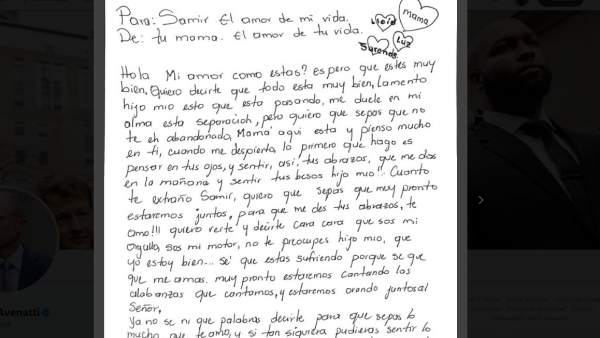 Para: Samir El amor de mi vida.
De: tu mama. El amor de tu vida.
mama
Luz
Hola Mi amor como estas? espero que estes muy
bien, Quiero decirte que todo esta muy bien, Lamento
hijo mio esto que esta pasando, me duele en mi
alma esta separación, pero quiero que sepas que no
te eh abandonado, Mamá aqui esta y pienso mucho
en ti, cuando me despierto lo primero que hago es
pensar en tus ojos, y sentir, asi, tus abrazos, que me das
en la mañana y sentir tus besos hijo mio!! Cuanto
te extraño Samir, quiero que sepas que muy pronto
estaremos juntos, para que me des tus abrazos, te
amo!!! quiero verte y decirte cara cara que sos mi
Orgullo, sos mi motor, no te preocupes hijo mio, que
yo estoy bien... sé que estas sufriendo porque se que
que me amas. muy pronto estaremos cantando las
alabanzas que cantamos, y estaremos orando juntos al
Señor,
Ya no se ni que palabras decirte para que sepas lo
mucho que te amo, y si tan siquiera pudieras sentir lo
Avenatti